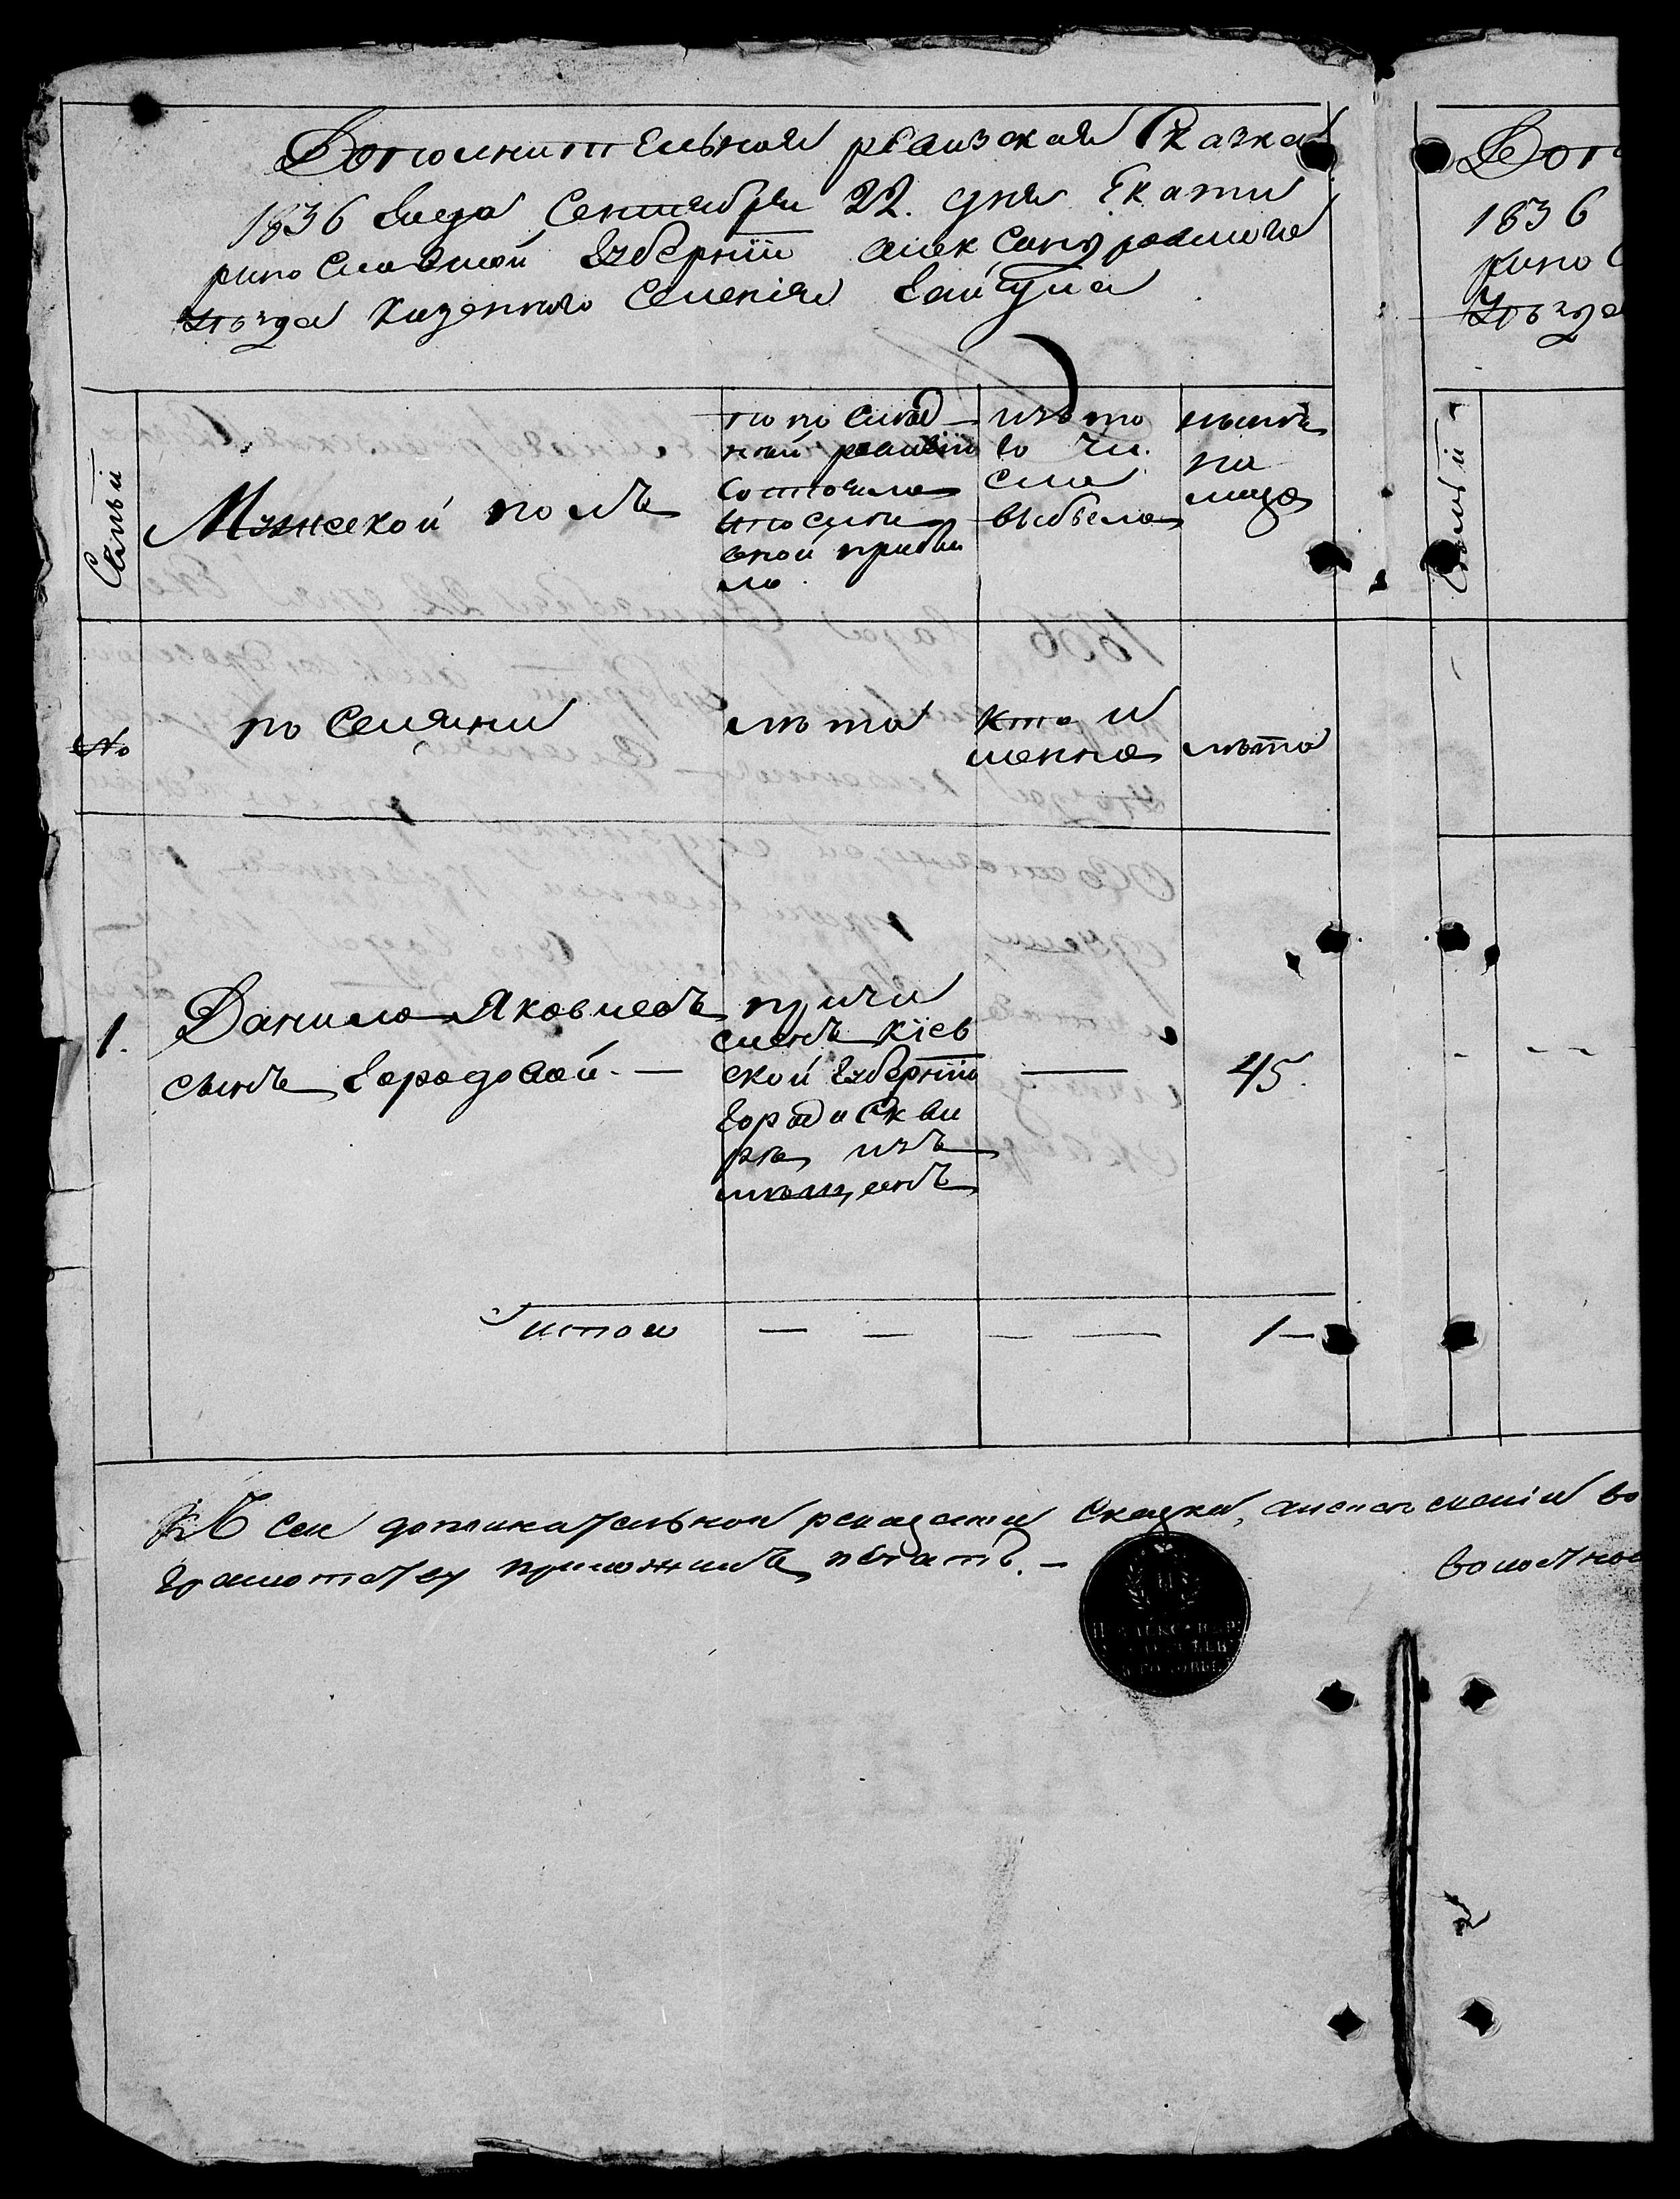 Дополнительная ревизская Сказка
1836 Года Сентября 22. дня Екате
рино Славской Губернїи Александровского
Уѣзда Казенного Селенія Гайчула
Семьи
Мужеской полъ
по по слѣд
ней ревизїи
Состояло
и после
оной прибы
ло
изъ то
го чи
сла
выбыло
нынѣ
на
лицо
№
поселяни
лѣта
кто и
менно
лѣта
1.
Данило Яковлевъ
сынъ Городовой. —
причи
сленъ Кїев
ской Губернїи
Города Скви
ры изъ
мещанъ
—
45.
итого — — — — 1 —
Къ сей дополнительной ревизской Сказки,
приложилъ печать. —
Доп
1836
рино С
Уѣзда
Семьи